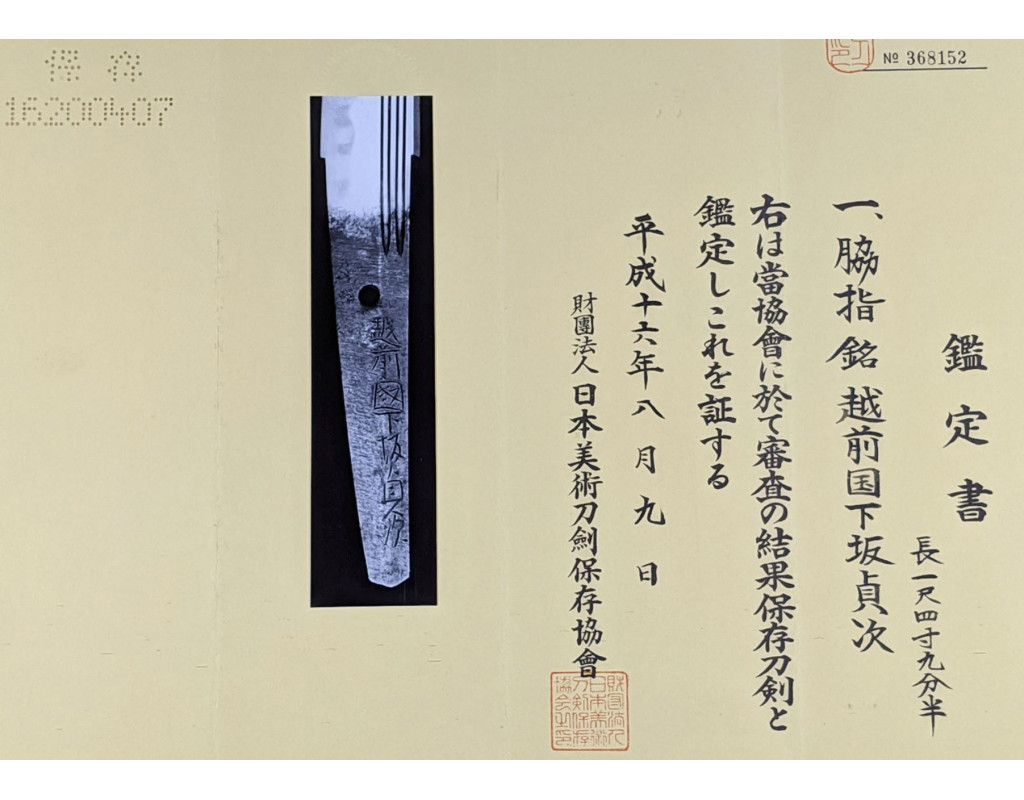 鑑定書
長一尺四寸九分半
一、脇指 銘 越前国下坂貞次
右は當協會に於て審査の結果保存刀剣と
鑑定しこれを証する
平成十六年八月九日
財團法人日本美術刀劍保存協會
財団法人
日本美術
刀剣保存
協会之印
№ 368152
越前國下坂貞次
保存
16200407